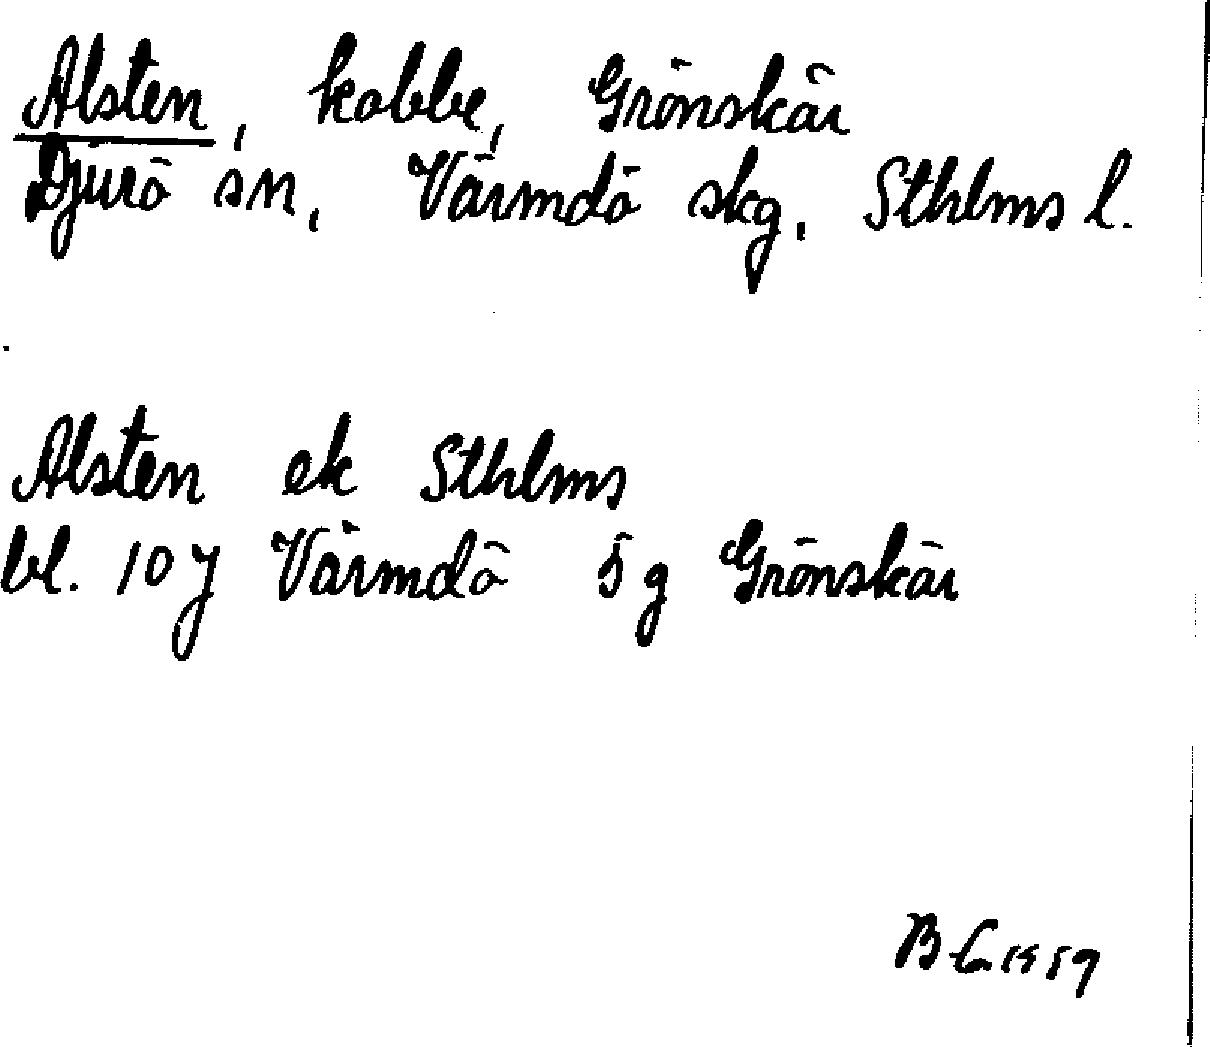 Alsten, kobbe, Grönskär
Djurö sn, Värmdö skg, Sthlms l.
Alsten ek Sthlms
bl. 10 y Värmdö 5 g Grönskär